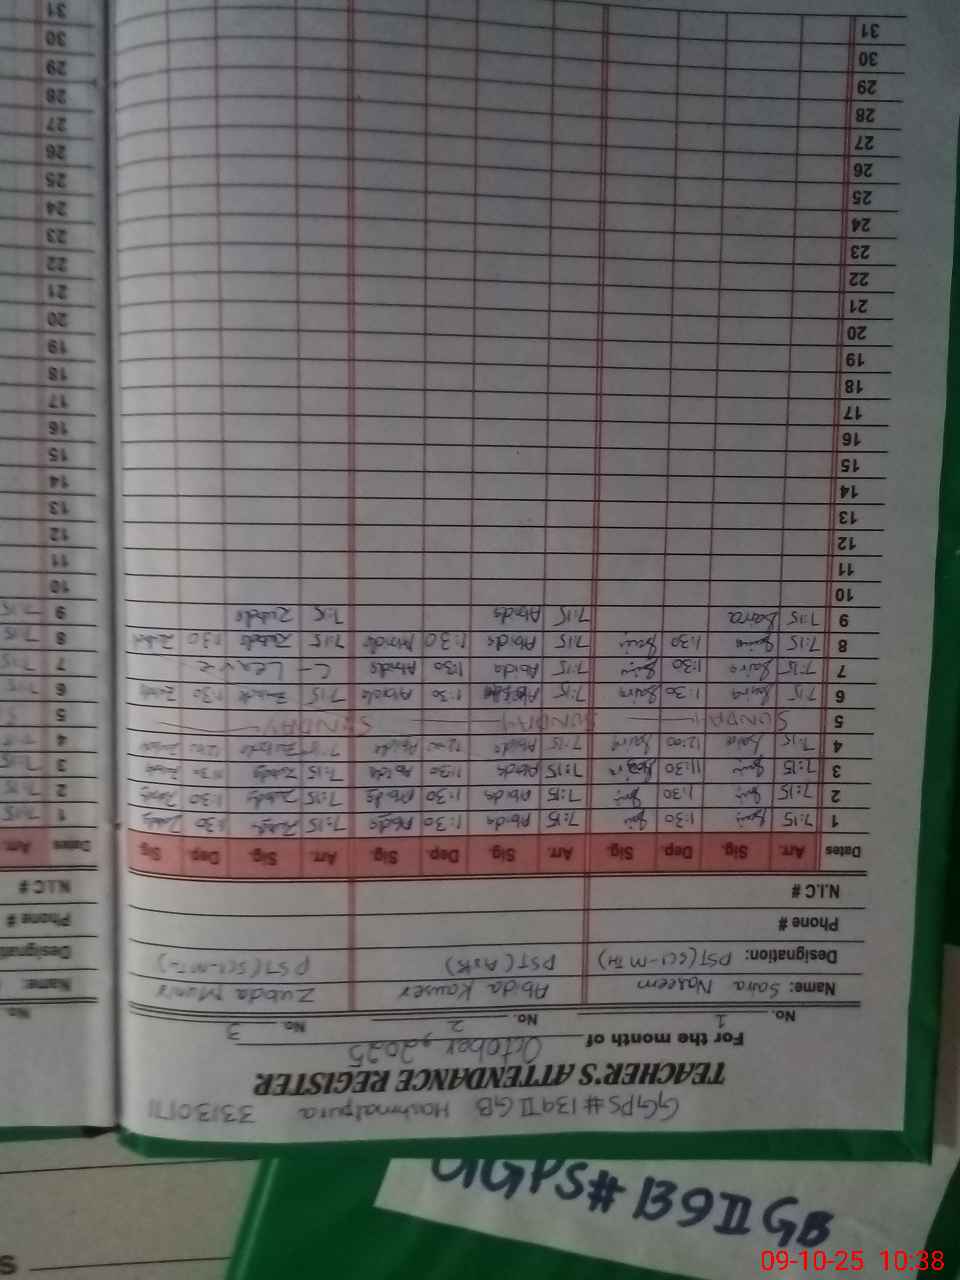 GGPS#139 II GB Hashmatpura 33130171
TEACHER'S ATTENDANCE REGISTER
For the month of October, 2025
No. 1 No. 2 No. 3
Name: Saira Naseem Abida Kauser Zubda Munir
Designation: PST(SCI-MTH) PST(Arts) PST(SCI-MTH)
Phone #
N.I.C #
Dates Arr. Sig. Dep. Sig. Arr. Sig. Dep. Sig. Arr. Sig. Dep. Sig.
1 7:15 1:30 7:15 Abida 1:30 Abida 7:15 Zubda 1:30 Zubda
2 7:15 1:30 7:15 Abida 1:30 Abida 7:15 Zubda 1:30 Zubda
3 7:15 11:30 7:15 Abida 11:30 Abida 7:15 Zubda 11:30 Zubda
4 7:15 Saira 12:00 Saira 7:15 Abida 12:00 Abida 7:15 Zubda 12:00 Zubda
5 SUNDAY SUNDAY SUNDAY
6 7:15 Saira 1:30 Saira 7:15 Abida 1:30 Abida 7:15 Zubda 1:30 Zubda
7 7:15 Saira 1:30 7:15 Abida 1:30 Abida C-Leave
8 7:15 1:30 7:15 Abida 1:30 Abida 7:15 Zubda 1:30 Zubda
9 7:15 Saira 7:15 Abida 7:15 Zubda
10
11
12
13
14
15
16
17
18
19
20
21
22
23
24
25
26
27
28
29
30
31
Name:
Phone #
N.I.C #
Dates Arr.
1 7:15
2 7:15
3 7:15
4
5
6 7:15
7 7:15
8 7:15
9 7:15
10
11
12
13
14
15
16
17
18
19
20
21
22
23
24
25
26
27
28
29
30
31
GGPS# 139 II GB
09-10-25 10:38